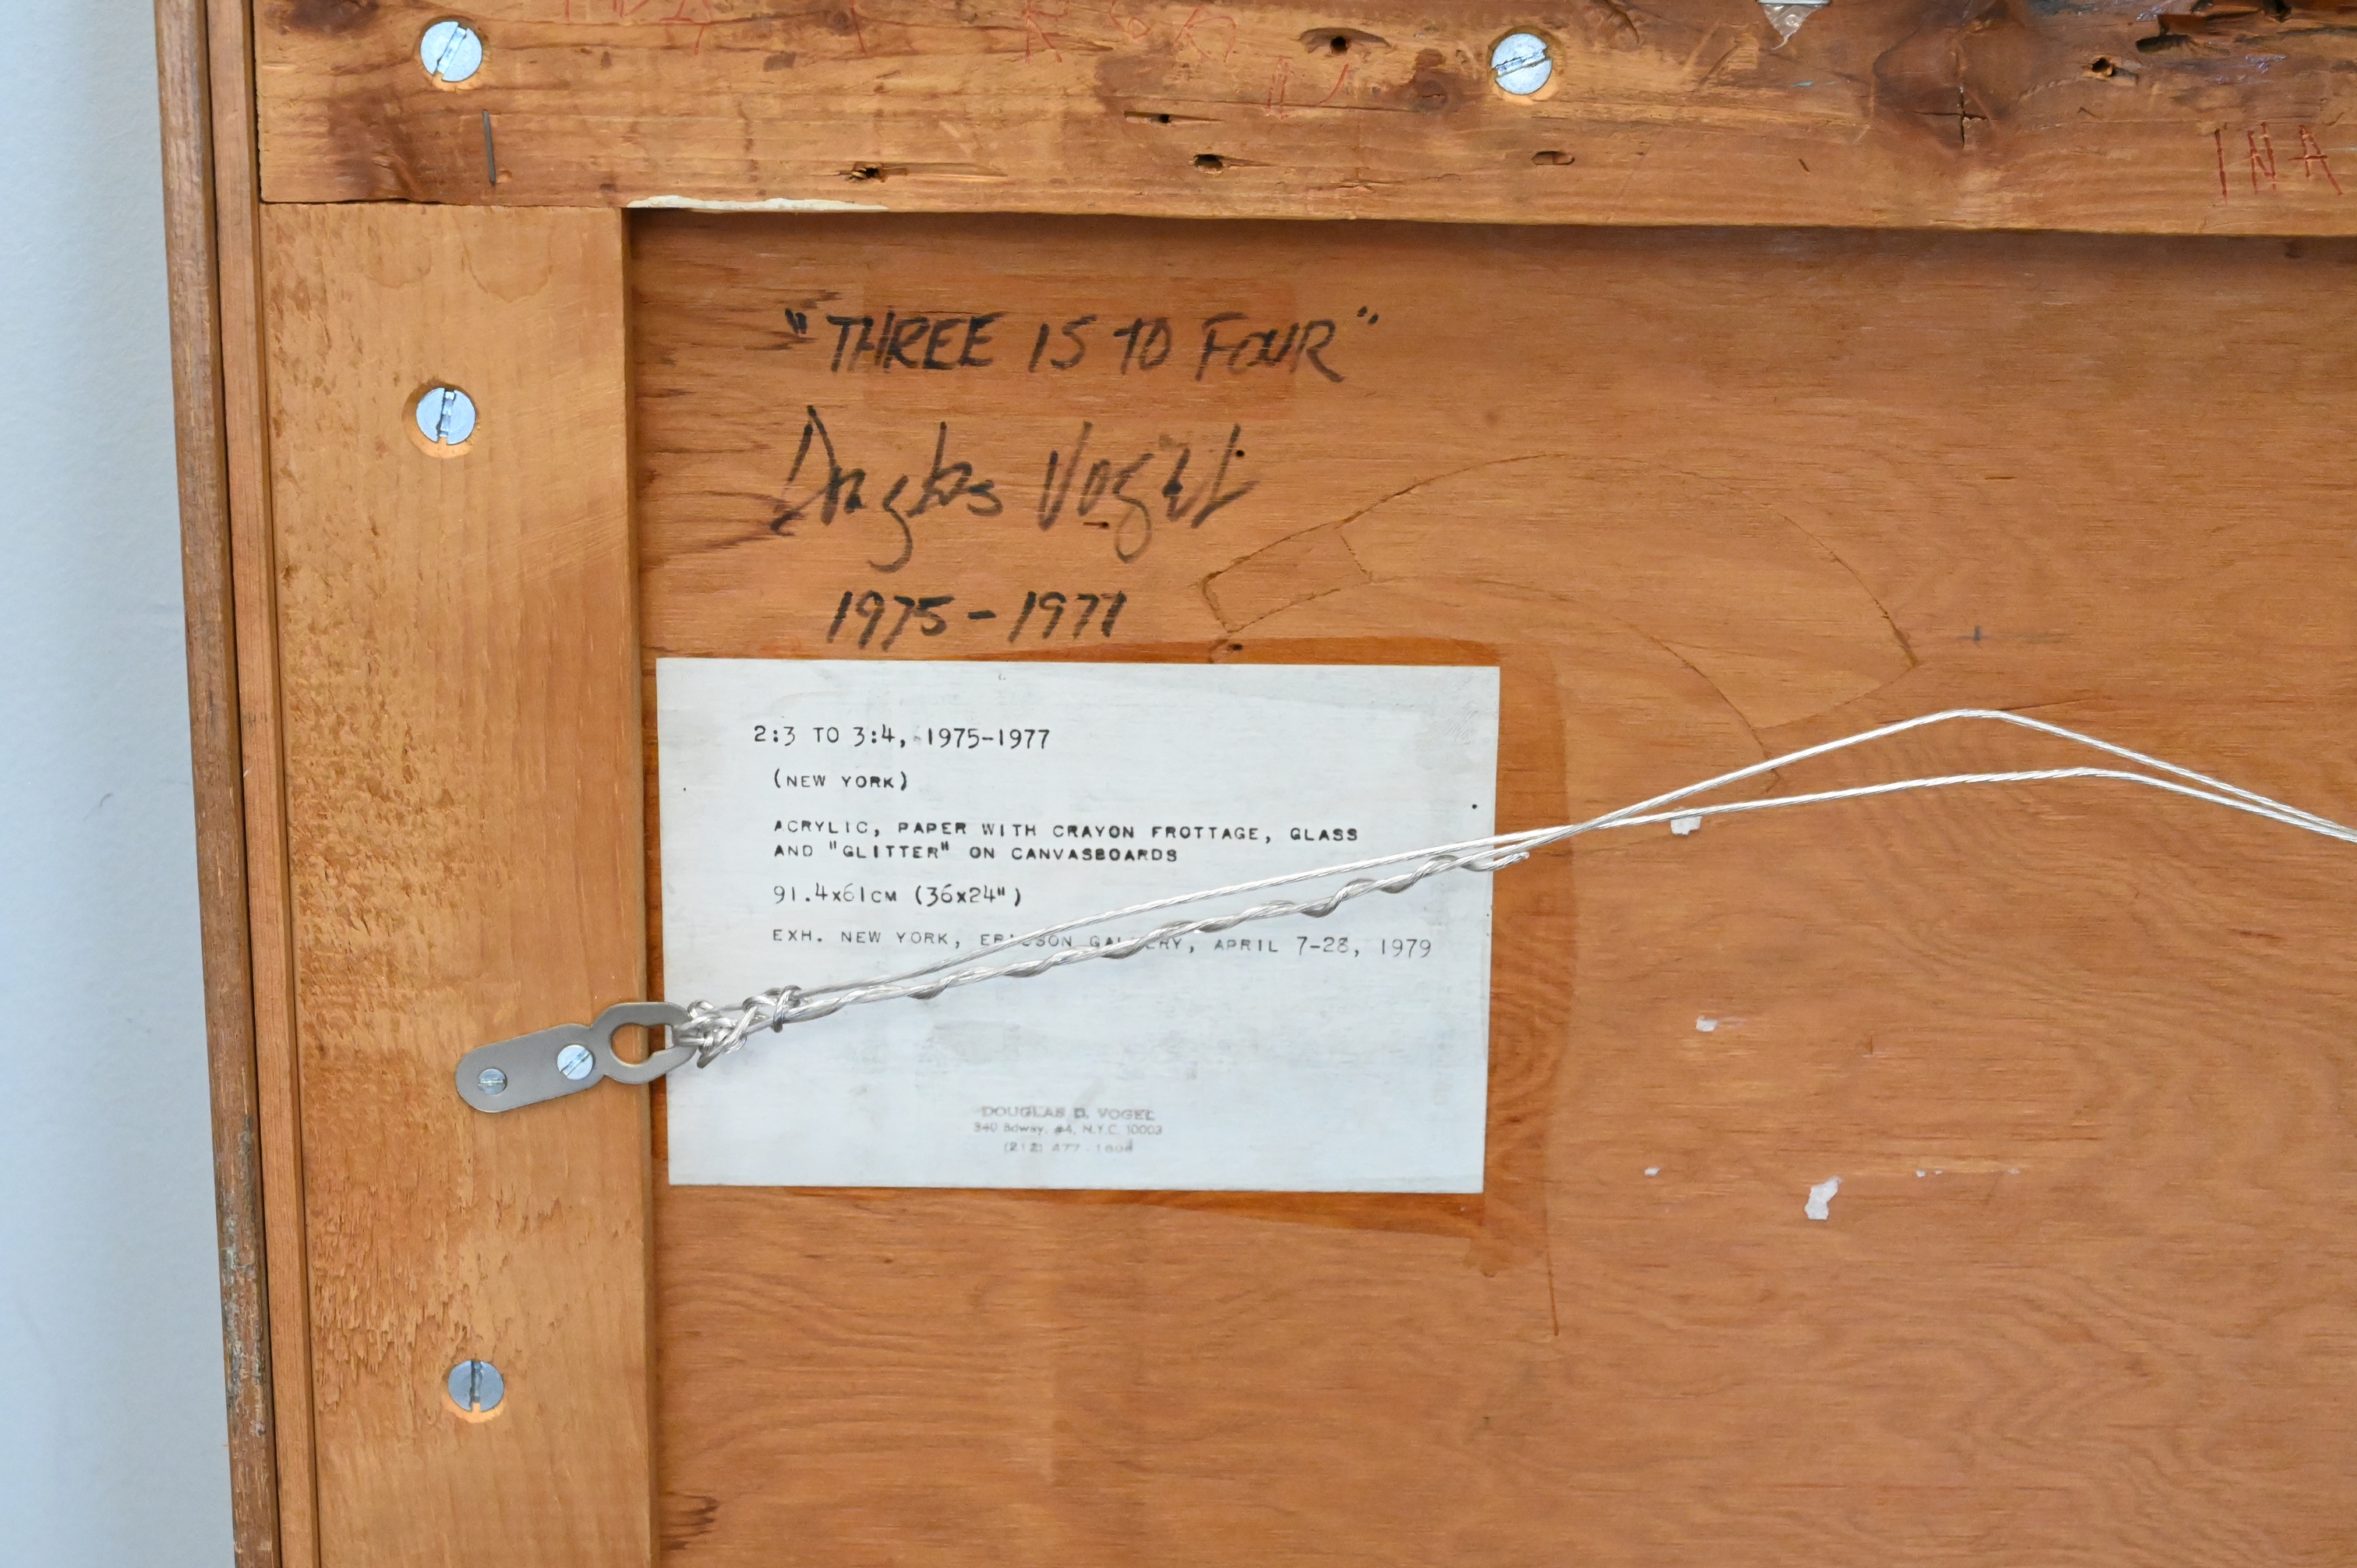 INA
"THREE IS TO FOUR"
Douglas Vogel
1975-1977
2:3 TO 3:4, 1975-1977
(NEW YORK)
ACRYLIC, PAPER WITH CRAYON FROTTAGE, GLASS
AND "GLITTER" ON CANVASBOARDS
91.4x61CM (36x24")
EXH. NEW YORK, ERICSON GALLERY, APRIL 7-28, 1979
DOUGLAS D. VOGEL
840 Bdway. #4, N.Y.C. 10003
(212) 477-